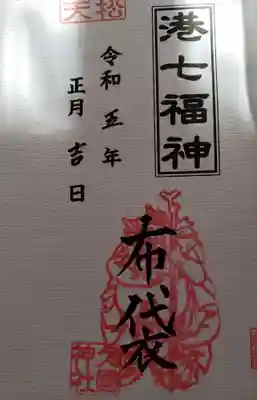 港七福神
布袋
令和五年
正月吉日